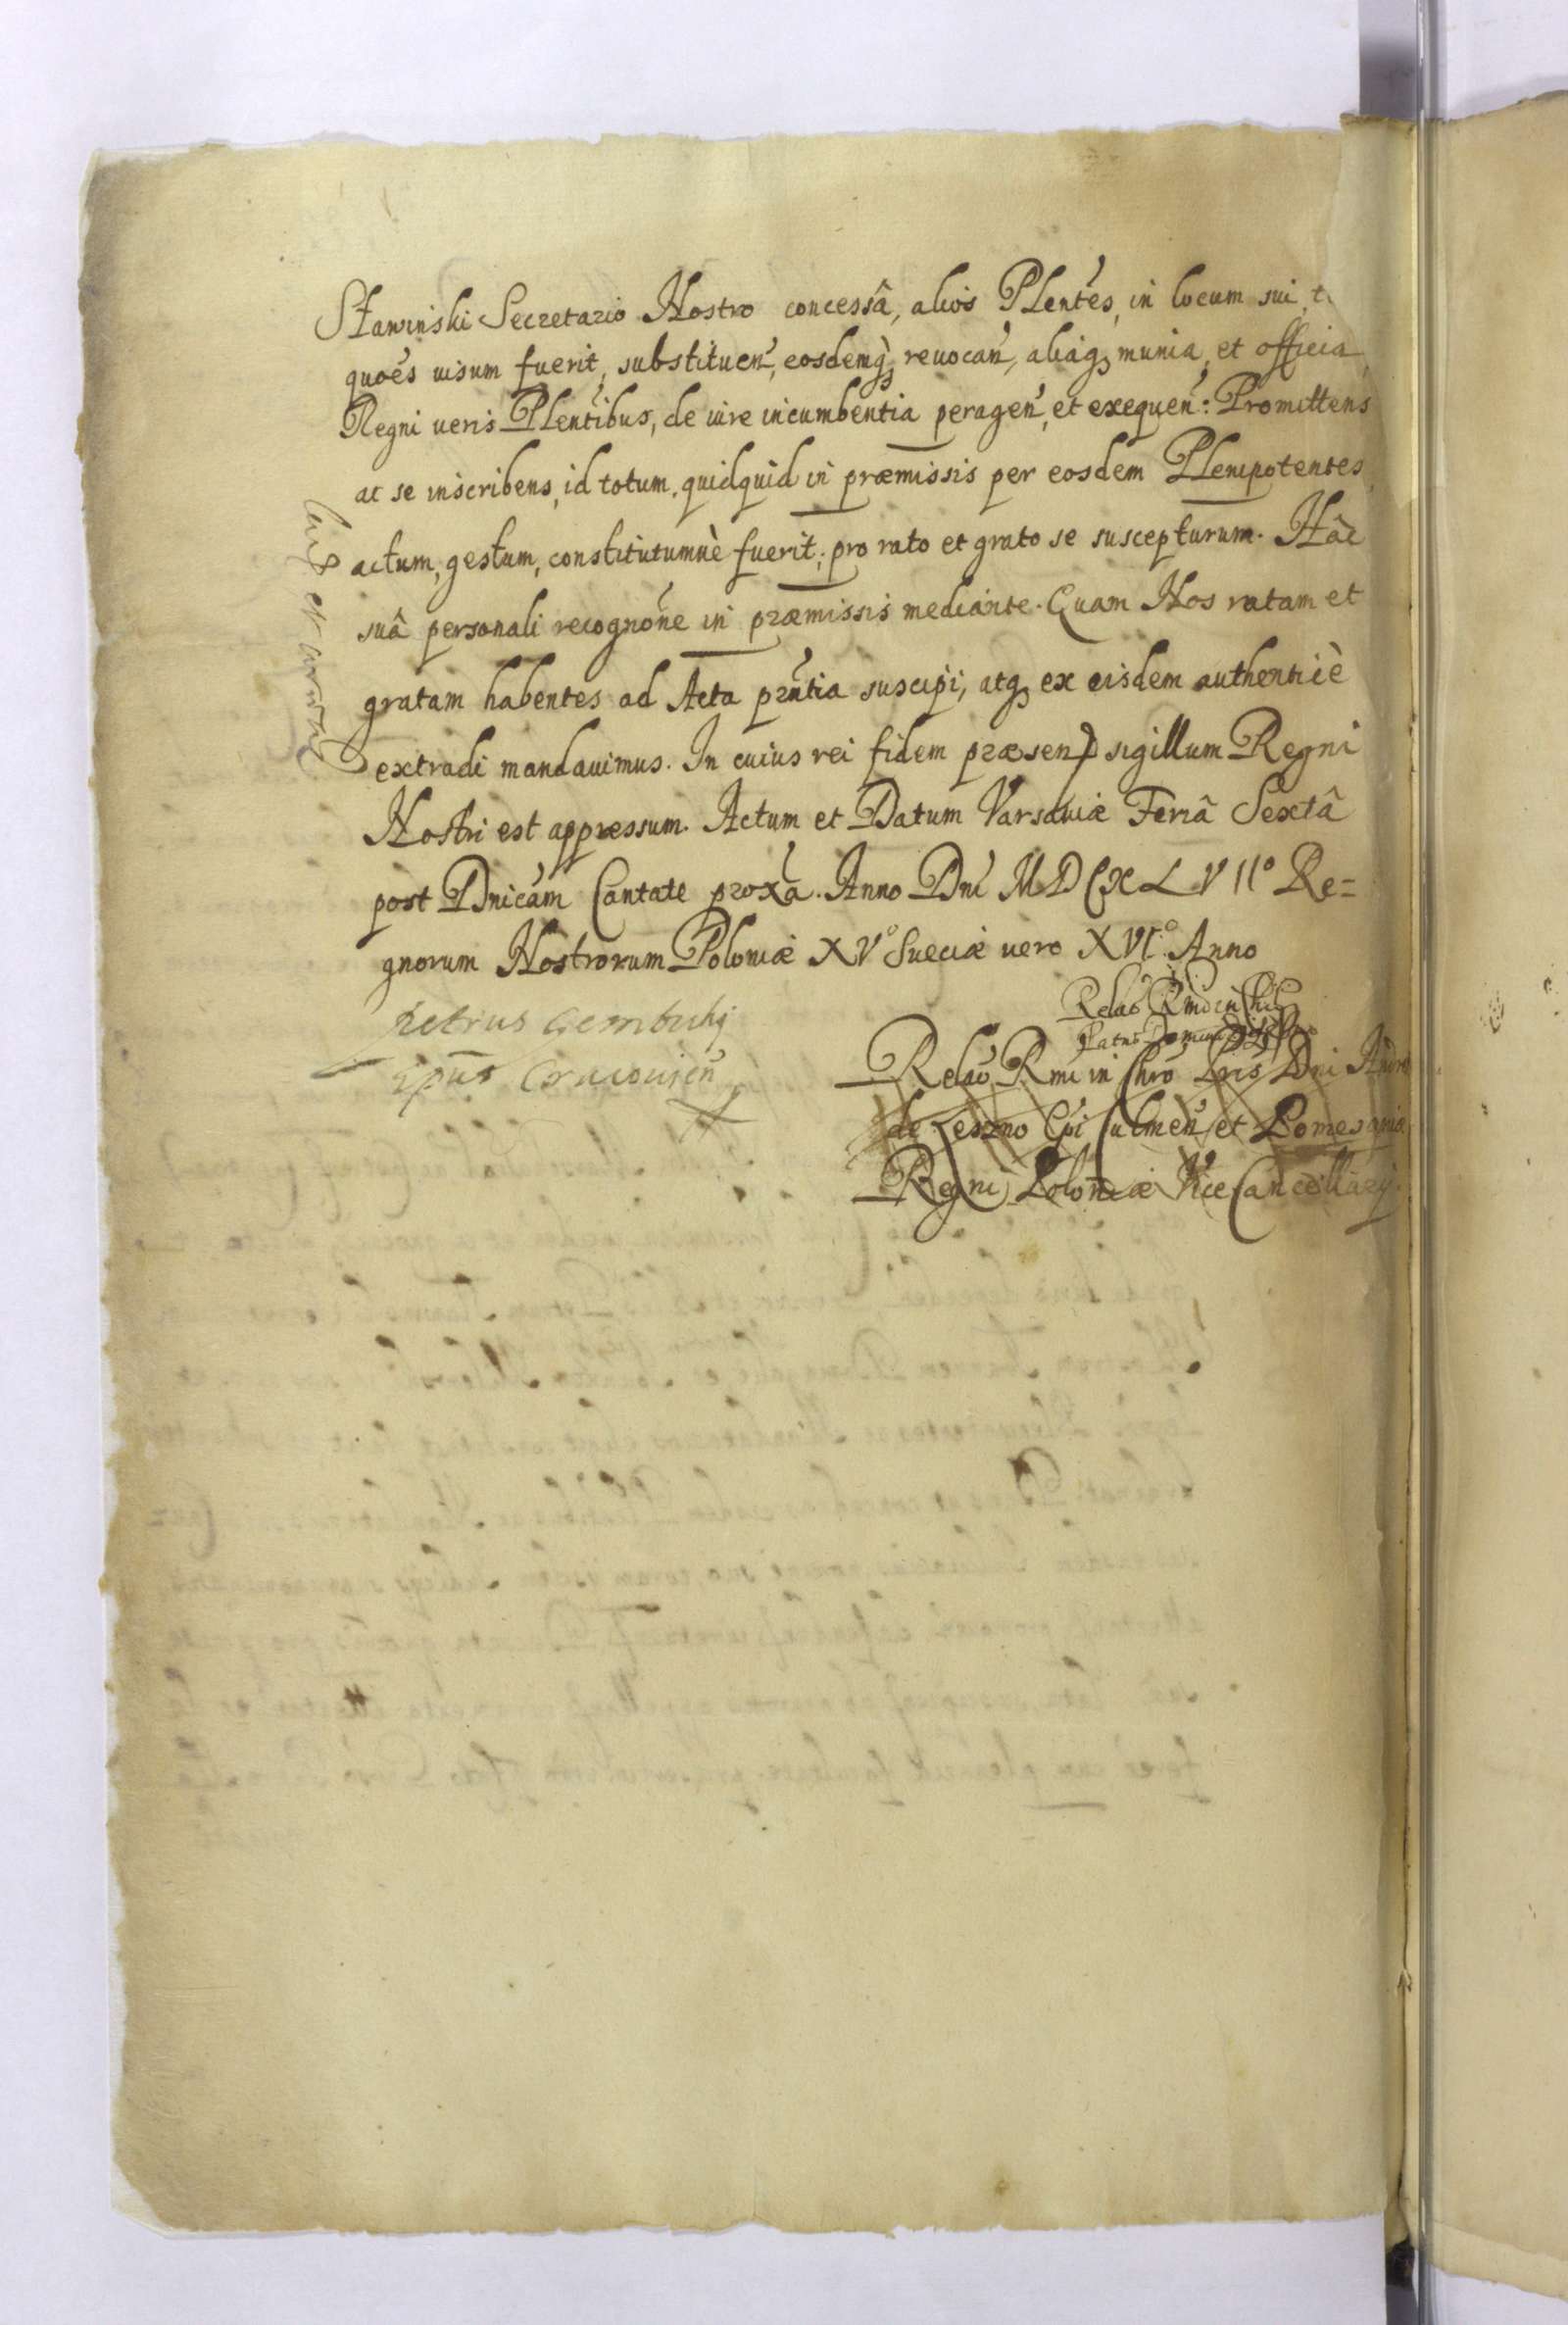 Stawinski Secretario Nostro concessâ, alios Plentes, in locum sui,
quoẽs uisum fuerit, substituen, eosdemq3 reuocan, aliaq3 munia, et officia
Regni ueris Plentibus, de iure incumbentia peragen, et exequen: Promittens
ac se inscribens, id totum, quidquid in præmissis per eosdem Plenipotentes
actum, gestum, constitutumuè fuerit, pro rato et grato se suscepturum. Hâc
suâ personali recognõne in præmissis mediante. Quam Nos ratam et
gratam habentes ad Acta prñtia suscipi, atq3 ex eisdem authenticè
extradi mandauimus. In cuius rei fidem præsen sigillum Regni
Nostri est appressum. Actum et Datum Varsauiæ Feriâ Sextâ
post Dnicam Cantate proxã. Anno Dni MDCXLVIIº Re=
gnorum Nostrorum Poloniæ XVº Sueciæ uero XVIº Anno
Petrus Gembicki
Epũs Cracouień
Relaõ Rmi in Chro Pris Dni
de Leszno Epi Culmeń et Pomesaniæ
Regni Poloniæ ViceCancellarij